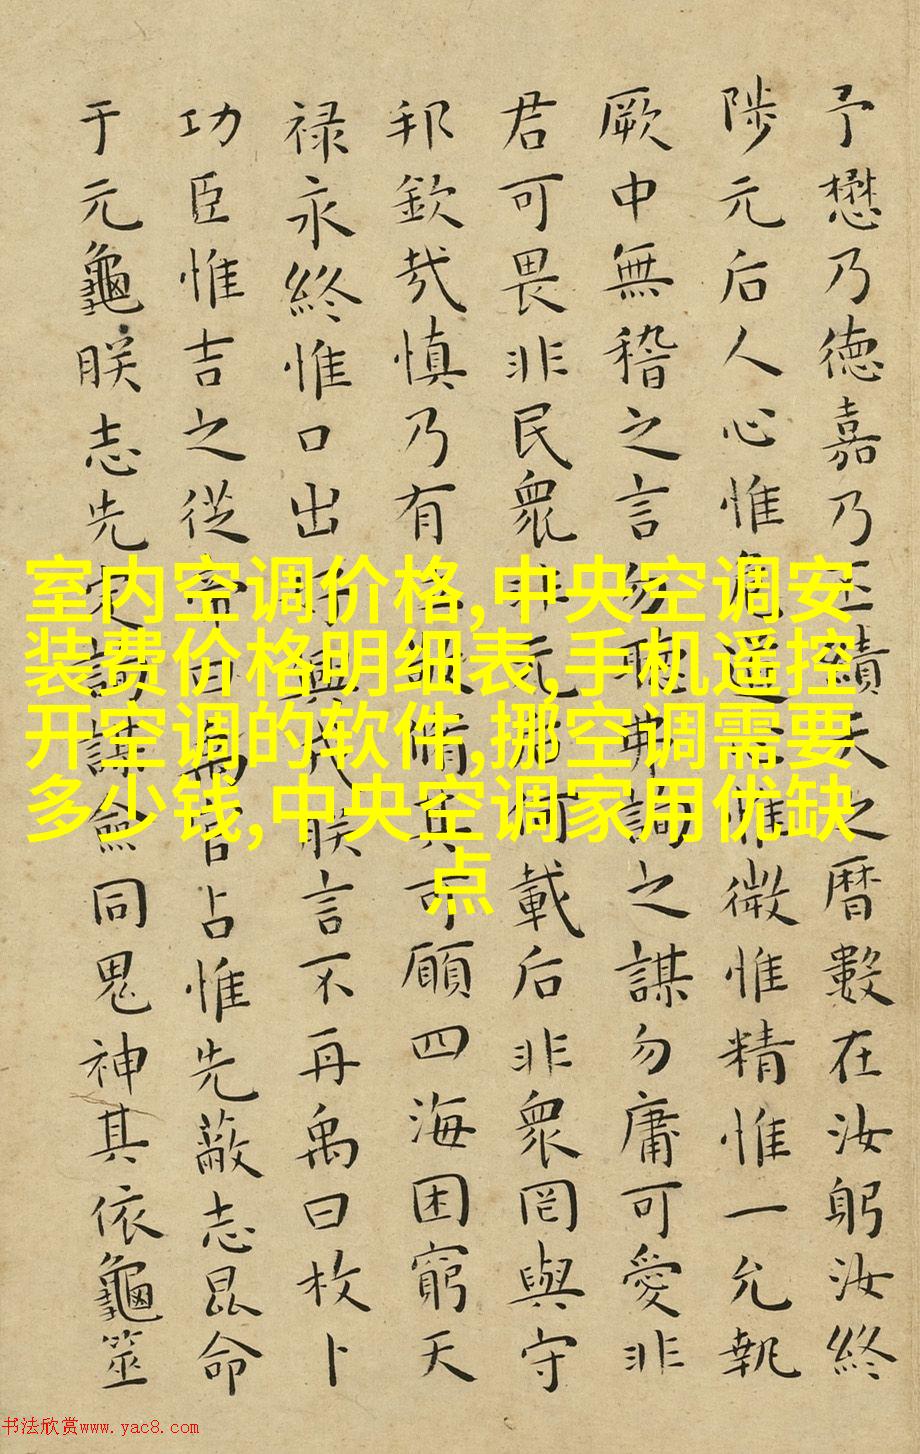 予懋乃德嘉乃丕績天之曆數在汝躬汝終
陟元后人心惟危道心惟微惟精惟一允執
厥中無稽之言勿聽弗詢之謀勿庸可愛非
君可畏非民衆非元后何載后非衆罔與守
邦欽哉慎乃有位敬脩其可願四海困窮天
禄永終惟口出好興戎朕言不再禹曰枚卜
功臣惟吉之從帝曰禹官占惟先蔽志昆命
于元龜朕志先定詢謀僉同鬼神其依龜筮
室内空调价格,中央空调安
装费价格明细表,手机遥控
开空调的软件,挪空调需要
多少钱,中央空调家用优缺
点
书法欣赏www.yac8.com